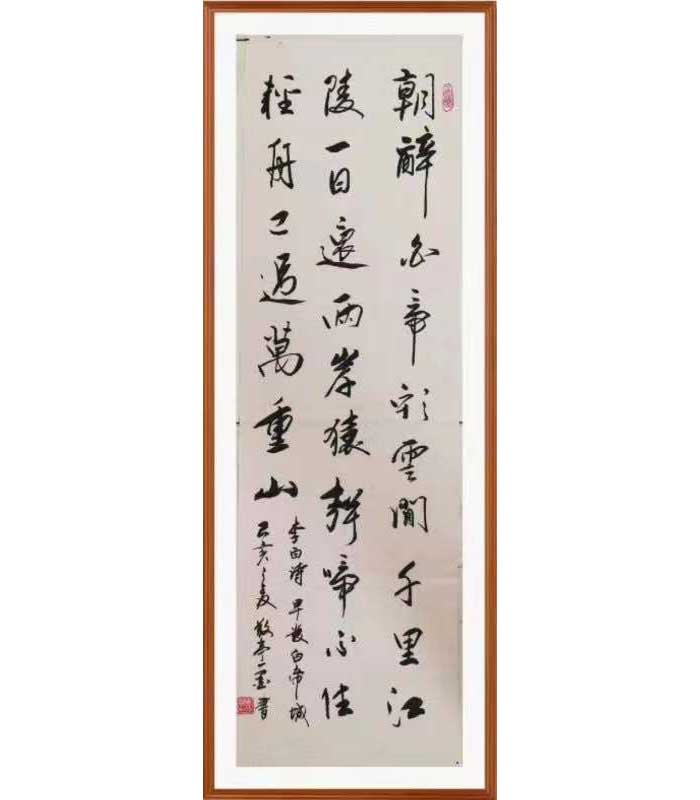 朝辭白帝彩雲間千里江
陵一日還兩岸猿聲啼不住
輕舟已過萬重山
李白詩早發白帝城
己亥之夏敬亭書